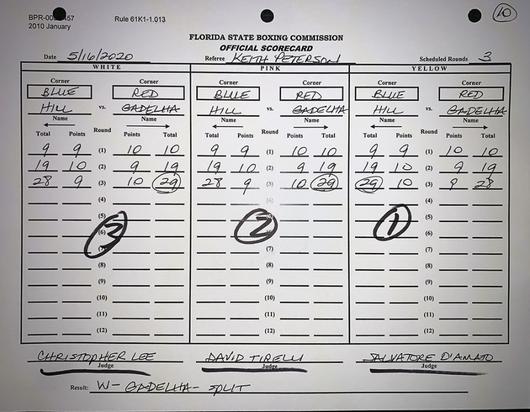 BPR-00 457 Rule 61K1-1.013 10
2010 January
FLORIDA STATE BOXING COMMISSION
OFFICIAL SCORECARD
Date 5/16/2020 Referee KEITH PETERSON Scheduled Rounds 3
WHITE PINK YELLOW
Corner Corner Corner Corner Corner Corner
BLUE RED BLUE RED BLUE RED
HILL vs. GADELHA HILL vs. GADELHA HILL vs. GADELHA
Name Name Name Name Name Name
Total Points Round Points Total Total Points Round Points Total Total Points Round Points Total
9 9 (1) 10 10 9 9 (1) 10 10 9 9 (1) 10 10
19 10 (2) 9 19 19 10 (2) 9 19 19 10 (2) 9 19
28 9 (3) 10 29 28 9 (3) 10 29 29 10 (3) 9 28
(4) (4) (4)
(5) (5) (5)
(6) 3 2 1
(8) (8) (8)
(9) (9) (9)
(10) (10) (10)
(11) (11) (11)
(12) (12) (12)
CHRISTOPHER LEE DAVID TIRELLI SALVATORE D'AMATO
Judge Judge Judge
Result: W- GADELHA- SPLIT